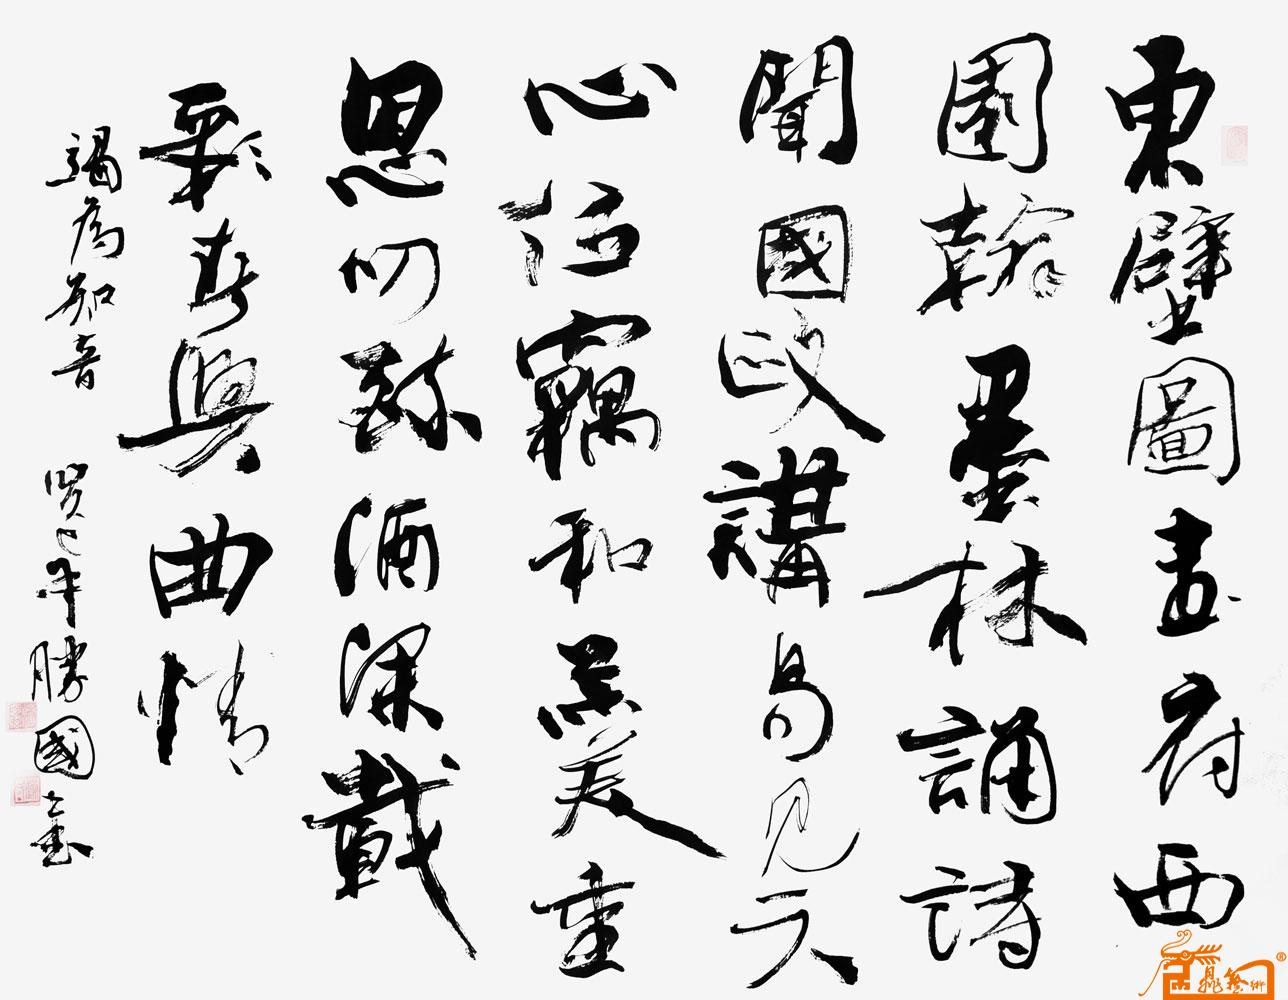 東壁圖書府西
園翰墨林誦詩
聞國政講易見天
心位竊和羹重
恩叨醉酒深載
歌春興曲情
竭為知音 癸巳年勝國書